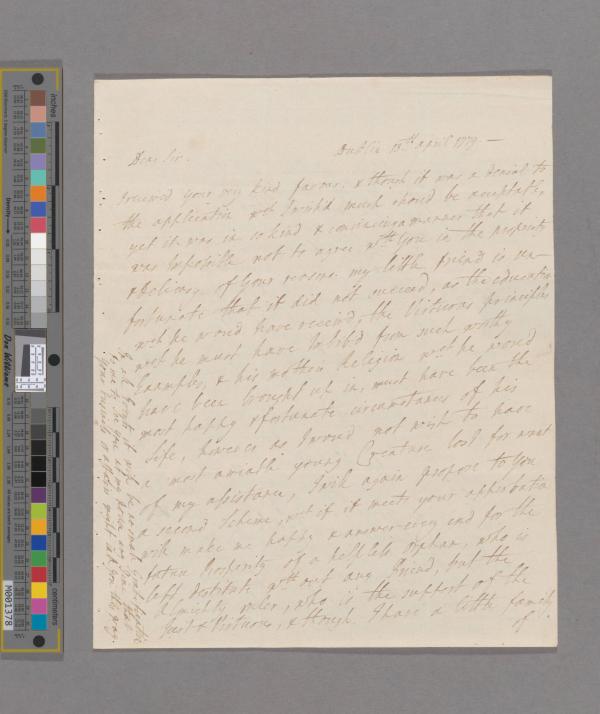 Dublin 13th april 1779. —
Dear Sir.
I received your very kind favour. & though it was a denial to
the application wch I wish'd much should be acceptable,
yet it was in so kind & convincing a manner that it
was Impossible not to agree wth you in the propriety
& delicacy of your reasons. my little friend is un-
fortunate that it did not succeed, as the education
wch he would have receiv'd, the Virtuous principles
wch he must have Imbib'd from such worthy
Examples, & his mothers Religion wch he would
have been brought up in, must have been the
most happy & fortunate circumstances of his
Life, however as I would not wish to have
a most amiable young Creature lost for want
of my assistance, I will again propose to you
a second Scheme, wch if it meets your approbation
will make me happy & answer every end for the
future Prosperity of a helpless Orphan who is
left destitute without any friend, but the
Almighty ruler, who is the support of the
Just & Virtuous, & though I have a little family
of
inches
centimetres
Don Williams
M001378